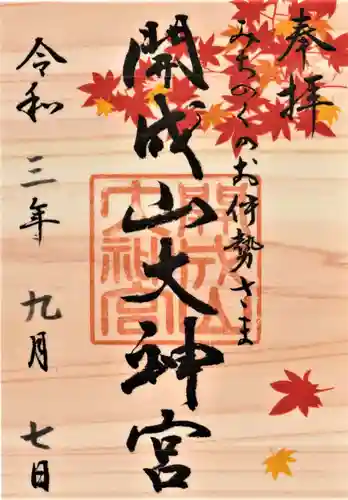 奉拝
みちのくのお伊勢さま
開成山大神宮
開成山大神宮
令和三年九月七日